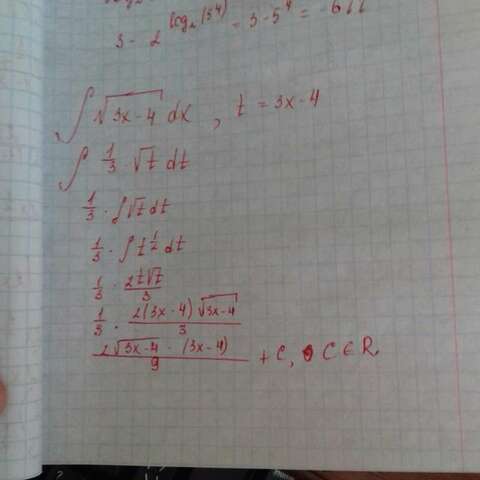 3 - 2^{log_2(5^4)} = 3 - 5^4 = -622
∫ √(3x-4) dx , t = 3x-4
∫ 1/3 · √t dt
1/3 · ∫ √t dt
1/3 · ∫ t^{1/2} dt
1/3 · 2t√t/3
1/3 · 2(3x-4) √(3x-4)/3
2√(3x-4 · (3x-4))/9 + C, C ∈ R.